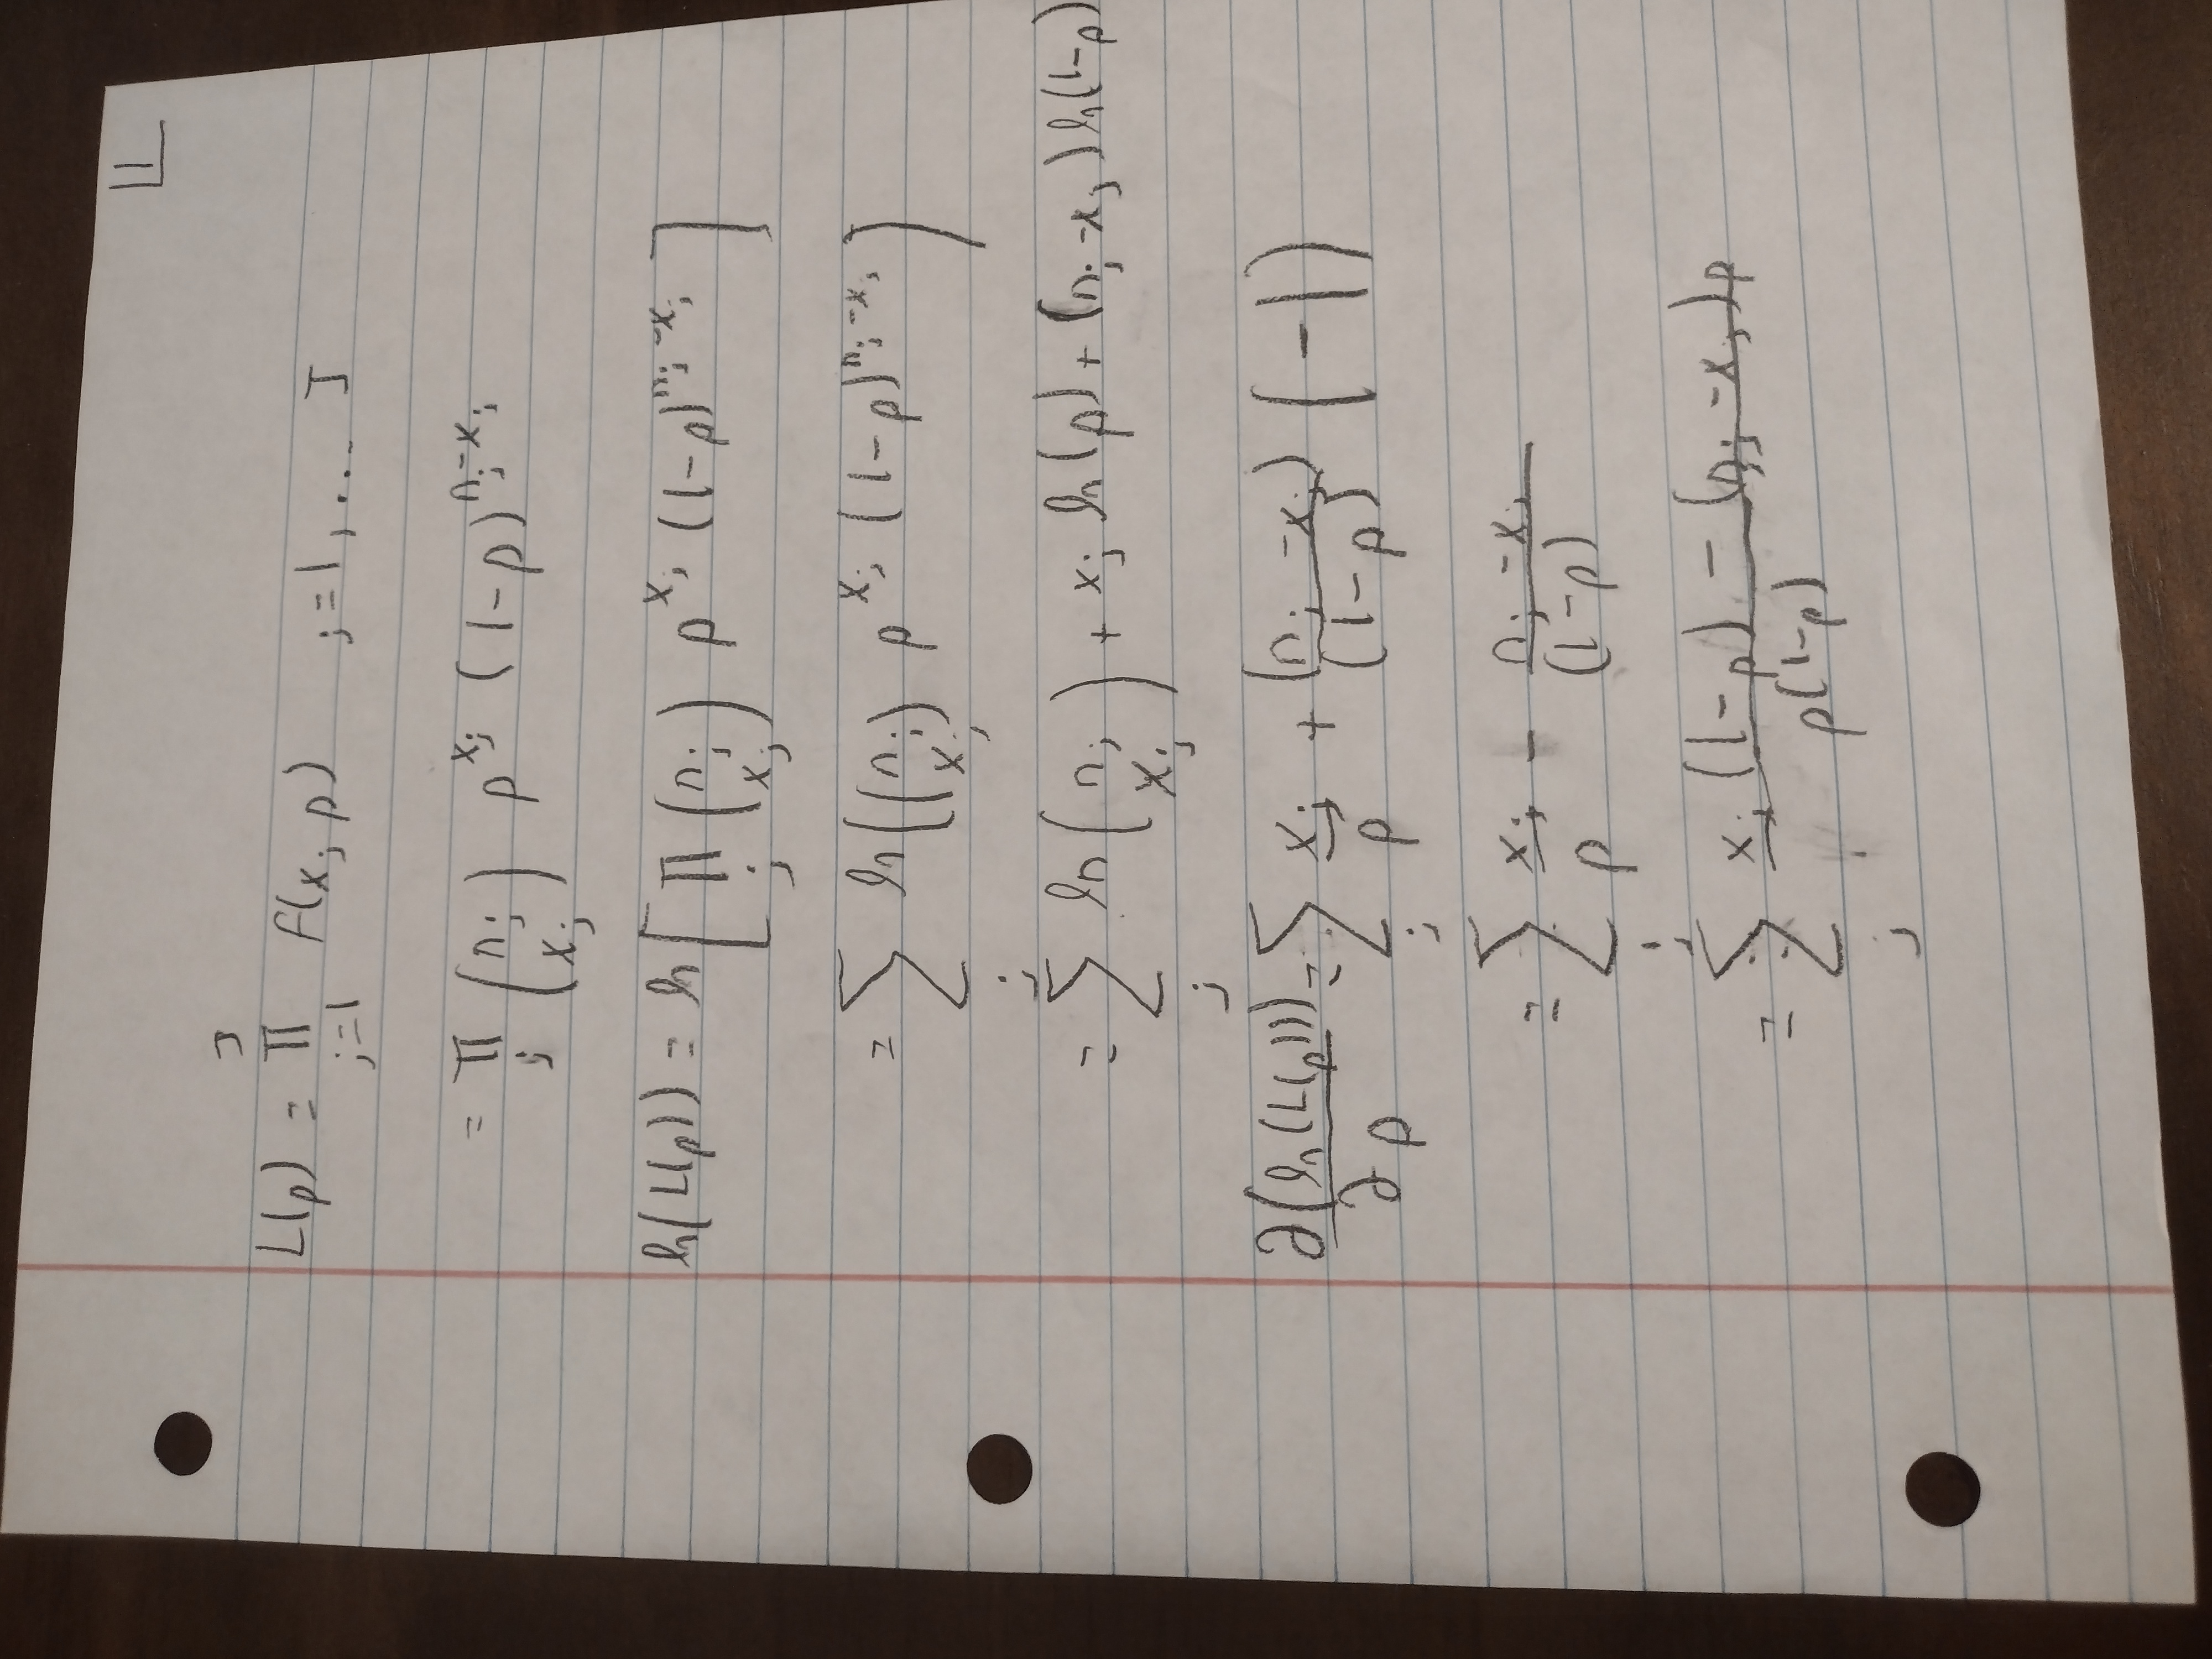 1
L(p) = ∏_{j=1}^{J} f(x_j p) j=1, ... J
= ∏_j (n_j x_j) p^{x_j} (1-p)^{n_j-x_j}
ln(L(p)) = ln[∏_j (n_j x_j) p^{x_j} (1-p)^{n_j-x_j}]
= ∑_j ln((n_j x_j) p^{x_j} (1-p)^{n_j-x_j})
= ∑_j ln(n_j x_j) + x_j ln(p) + (n_j-x_j) ln(1-p)
∂(ln(L(p)))/∂p = ∑_j x_j/p + (n_j-x_j)/(1-p) (-1)
= ∑_j x_j/p - n_j-x_j/(1-p)
= ∑_j x_j(1-p) - (n_j-x_j)p/p(1-p)